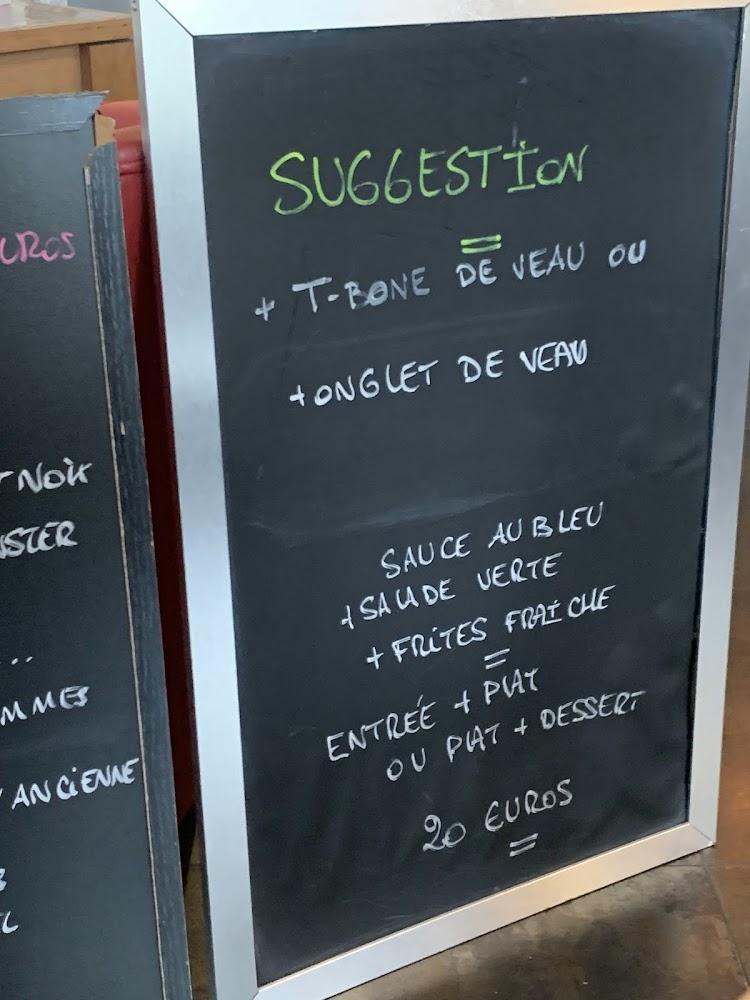 SUGGESTION
=
+ T-BONE DE VEAU OU
+ ONGLET DE VEAU
SAUCE AU BLEU
+ SALADE VERTE
+ FRITES FRAÎCHE
=
ENTRÉE + PLAT
OU PLAT + DESSERT
20 EUROS
=
UROS
NOIX
NSTER
...
MMES
ANCIENNE